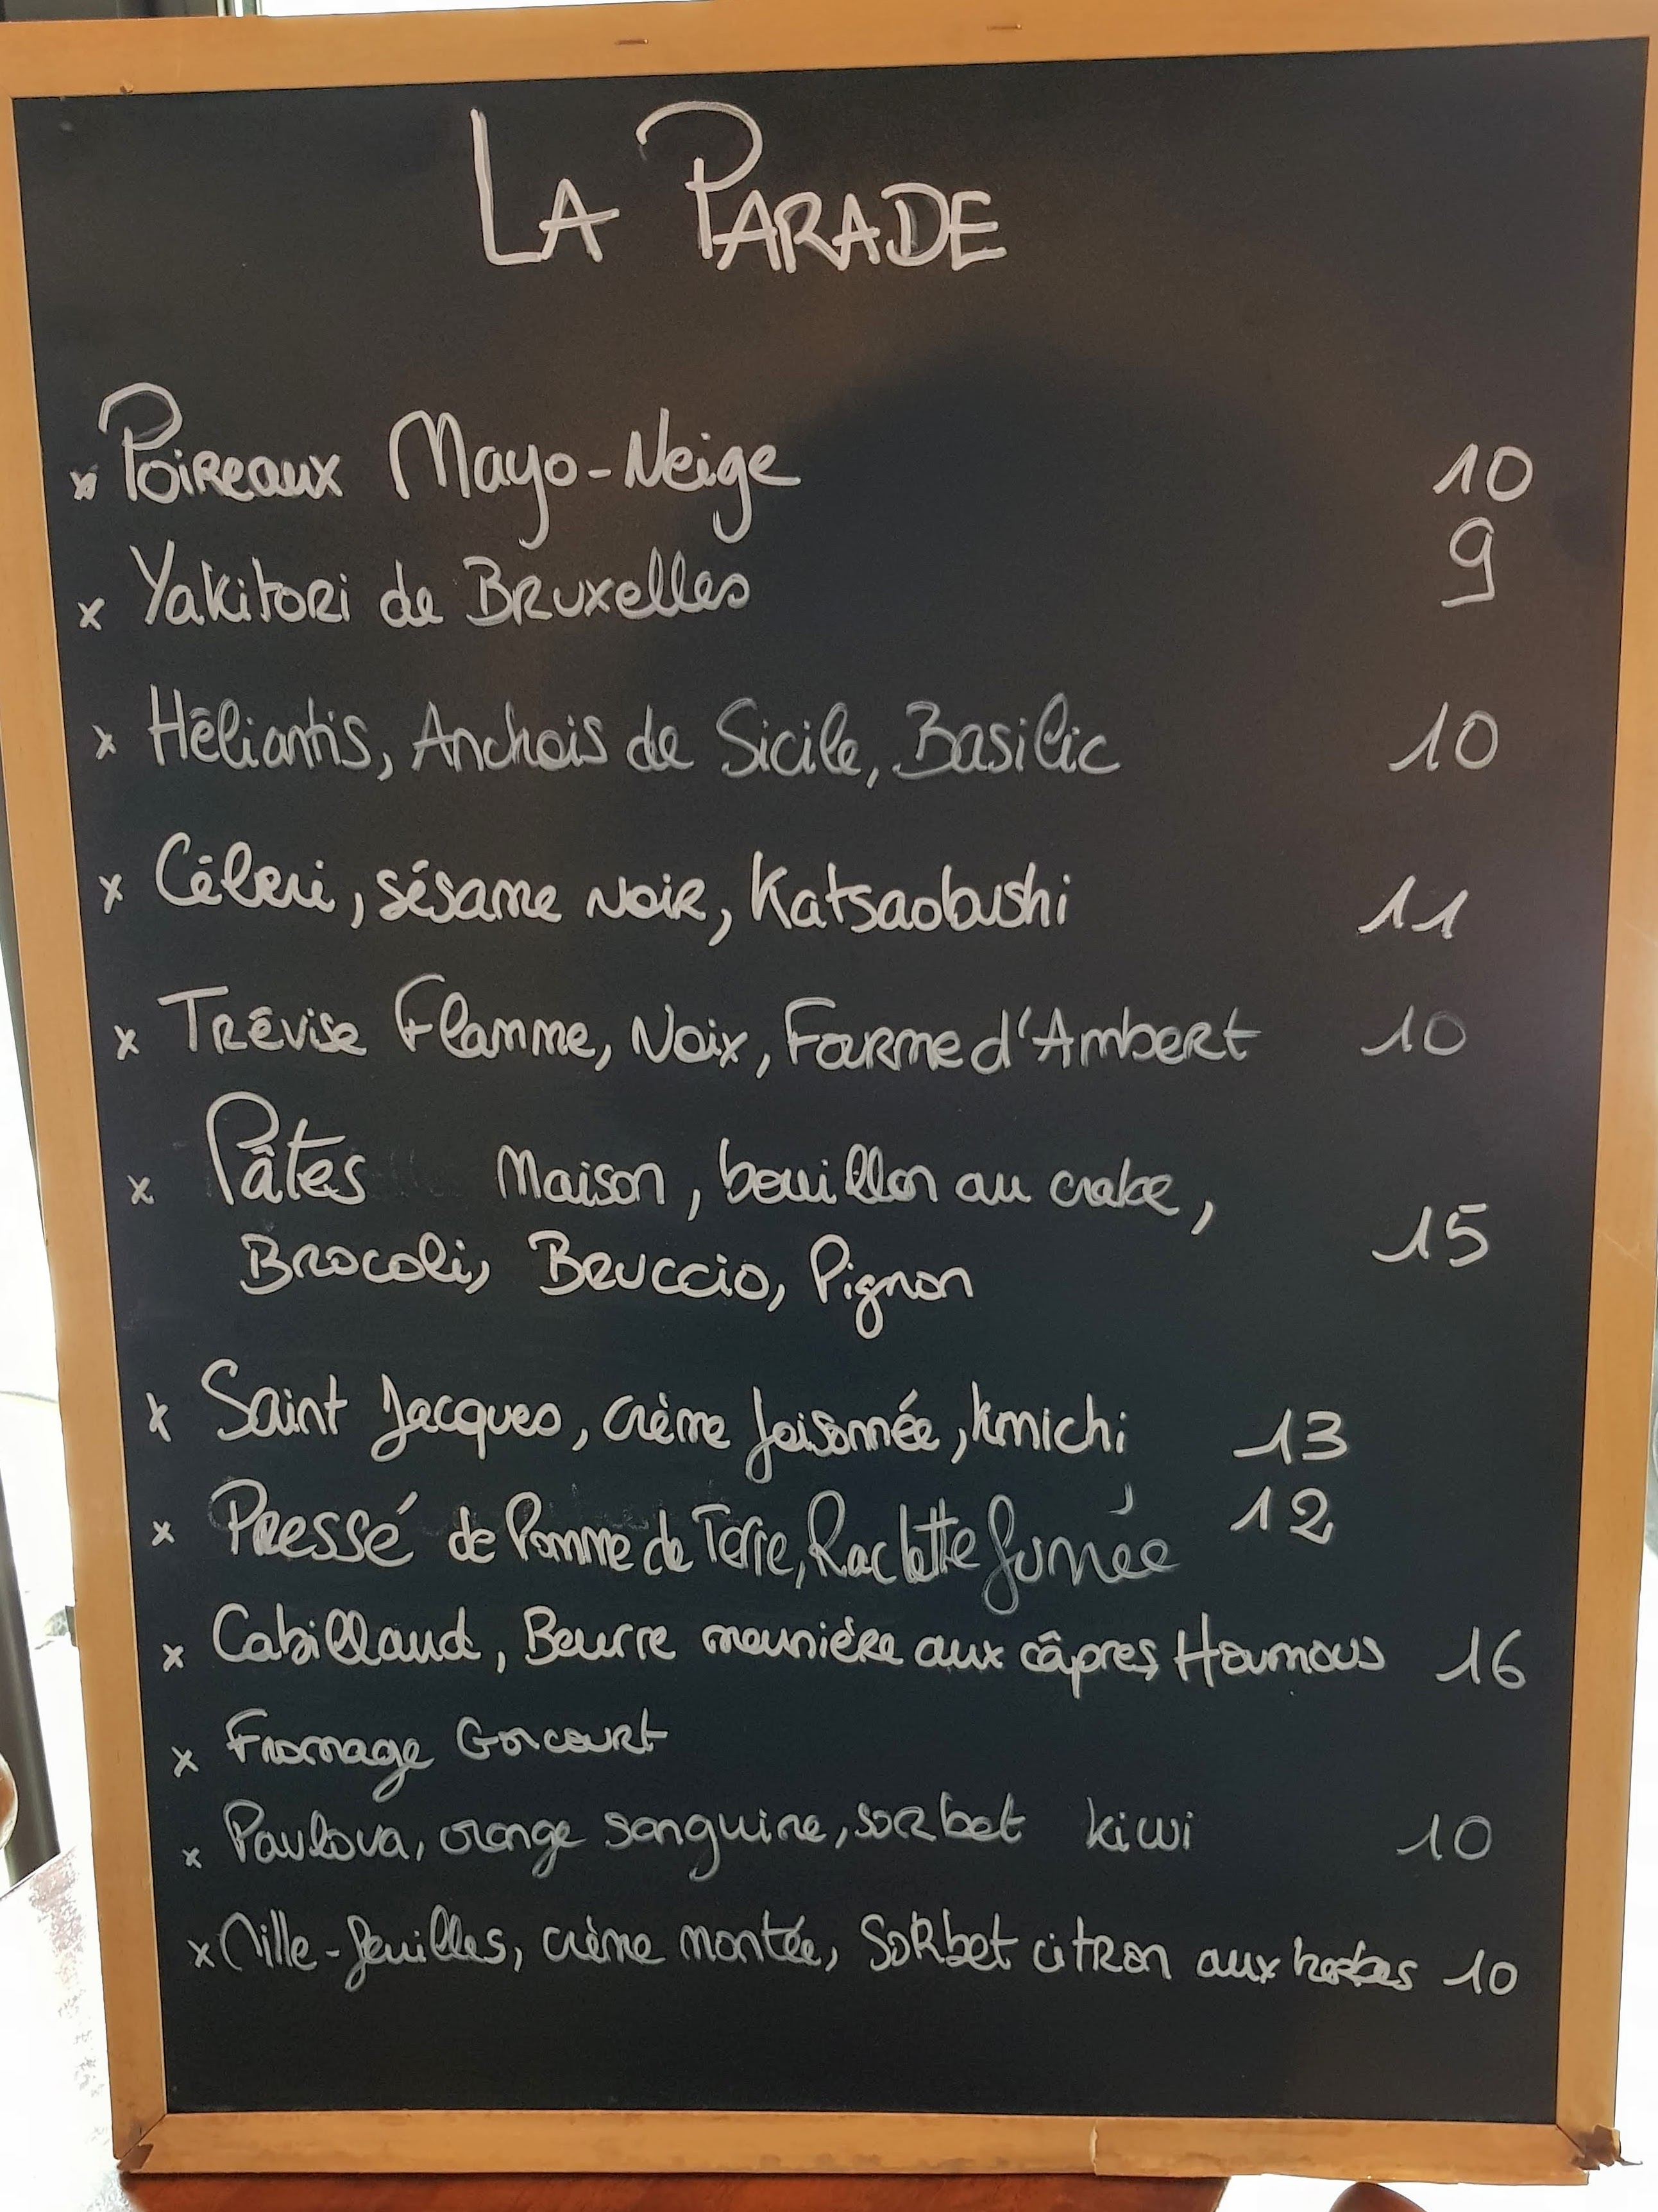 LA PARADE
x Poireaux Mayo-Neige 10
x Yakitori de Bruxelles 9
x Héliantis, Anchois de Sicile, Basilic 10
x Céleri, sésame noir, Katsaobushi 11
x Trévise Flamme, Noix, Fourme d'Ambert 10
x Pâtes Maison, bouillon au crabe,
Brocoli, Bruccio, Pignon 15
x Saint Jacques, crème foisonnée, kimichi 13
x Pressé de Pomme de Terre, Raclette fumée 12
x Cabillaud, Beurre meunière aux câpres, Houmous 16
x Fromage Goncourt
x Pavlova, orange sanguine, sorbet kiwi 10
x Mille-feuilles, crème montée, Sorbet citron aux herbes 10